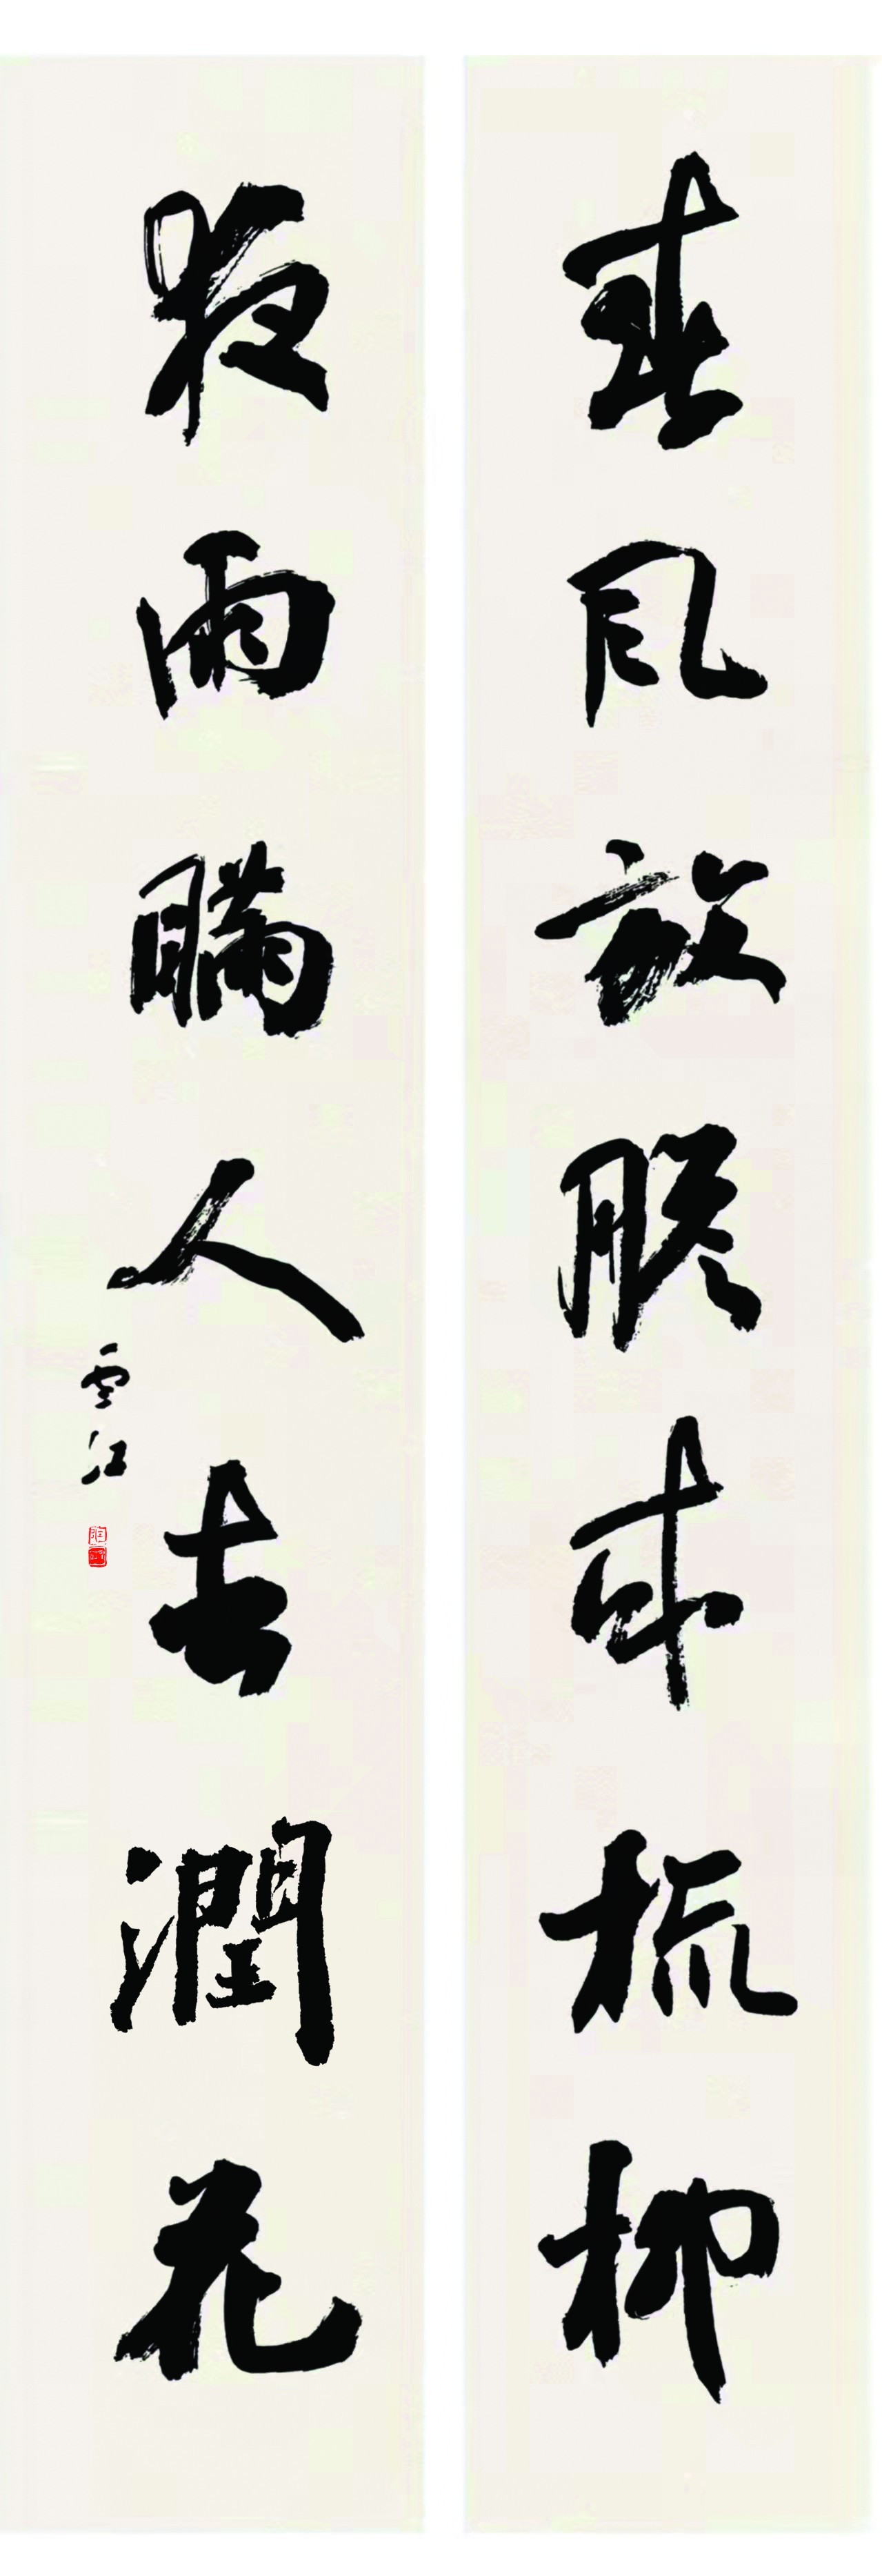 春風放胆來梳柳
夜雨瞞人去潤花
雲江